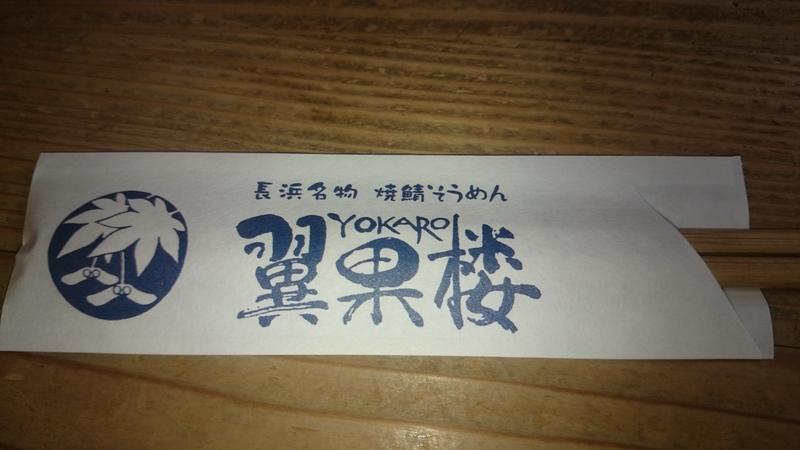 長浜名物 焼鯖そうめん
YOKARO
翼果楼